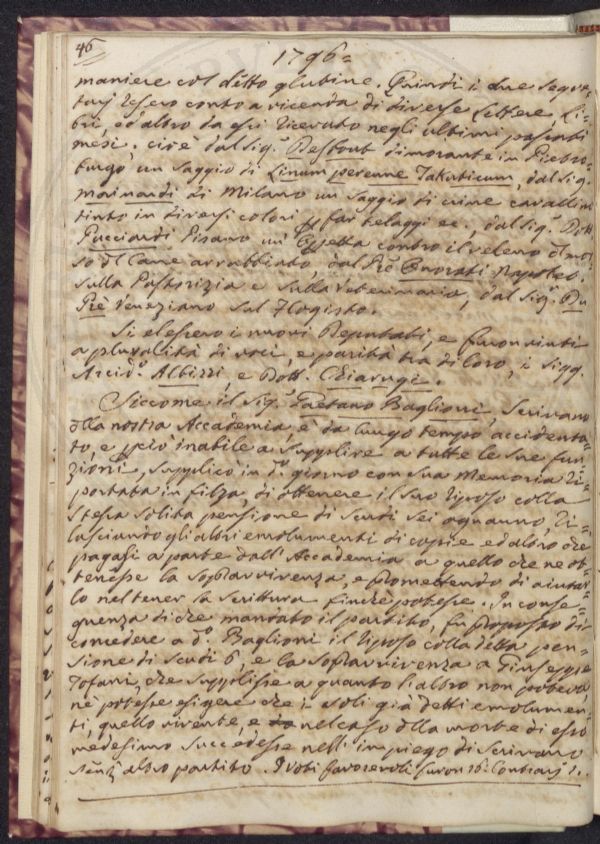 46
1796=
maniere col detto glutine. Quindi i due Segre=
tarj resero conto a vicenda di diverse Lettere, Li=
bri, ed altro da essi ricevuto negli ultimi passati
mesi, cioè dal Sig.r Destout dimorante in Pietro=
burgo un saggio di Linum perenne Jakuticum, dal Sig.
Mainardi di Milano un saggio di crine cavallino
tinto in diversi colori p far telaggi ec., dal Sig.r Dott
Pucciardi Pisano un' contro il veleno dl mor
so dl Cane arrabbiato, dal Pre Onorati Napolet.
sulla Pastorizia e sulla Veterinaria, dal Sig.r Du
Prè Veneziano sul Flogisto.
Si elessero i nuovi Deputati, e furon vinti
a pluralità di voci, e parità tra di loro, i Sigg.
Arcid. Albizzi, e Dott. Chiarugi.
Siccome il Sig.r Gaetano Baglioni, Scrivano
dlla nostra Accademia, è da lungo tempo accidenta=
to, e pciò inabile a supplire a tutte le sue fun=
zioni, supplicò in do. giorno con sua Memoria ri=
portata in filza, di ottenere il suo riposo colla
stessa solita pensione di Scudi sei ogn'anno, ri=
lasciando gli altri emolumenti di copie ed altro che
pagasi a parte dall' Accademia a quello che ne ot=
tenesse la sopravvivenza, e promettendo di aiutar=
lo nel tener la scrittura finchè potesse. In conse=
guenza di che mandato il partito, fu proposto di
concedere a do. Baglioni il riposo colla detta pen=
sione di Scudi 6, e la sopravvivenza a Giuseppe
Tofani, che supplisse a quanto l'altro non poteva,
nè potesse esigere che i soli già detti emolumen=
ti, quello vivente, e nel caso dlla morte di esso
medesimo succedesse nell' impiego di Scrivano
senz' altro partito. I voti favorevoli furon 16. Contrarj 1.